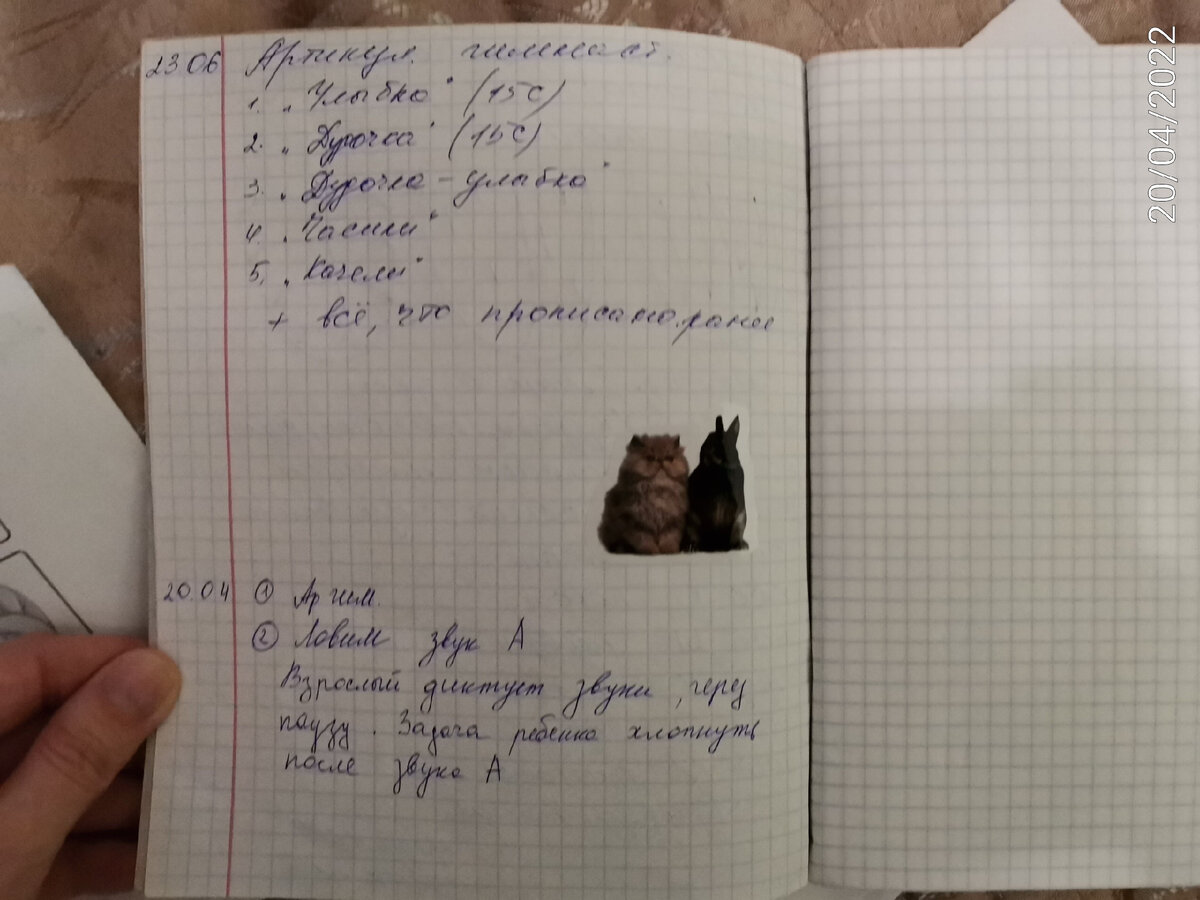 23.06 Артикул. гимнаст.
1. „Улыбка" (15с)
2. „Дудочка" (15с)
3. „Дудочка - улыбка"
4. „Часики"
5. „Качели"
+ всё, что прописано ранее
20.04 ① Ар гим.
② Ловим звук А
Взрослый диктует звуки, через
паузу. Задача ребенка хлопнуть
после звука А
20/04/2022